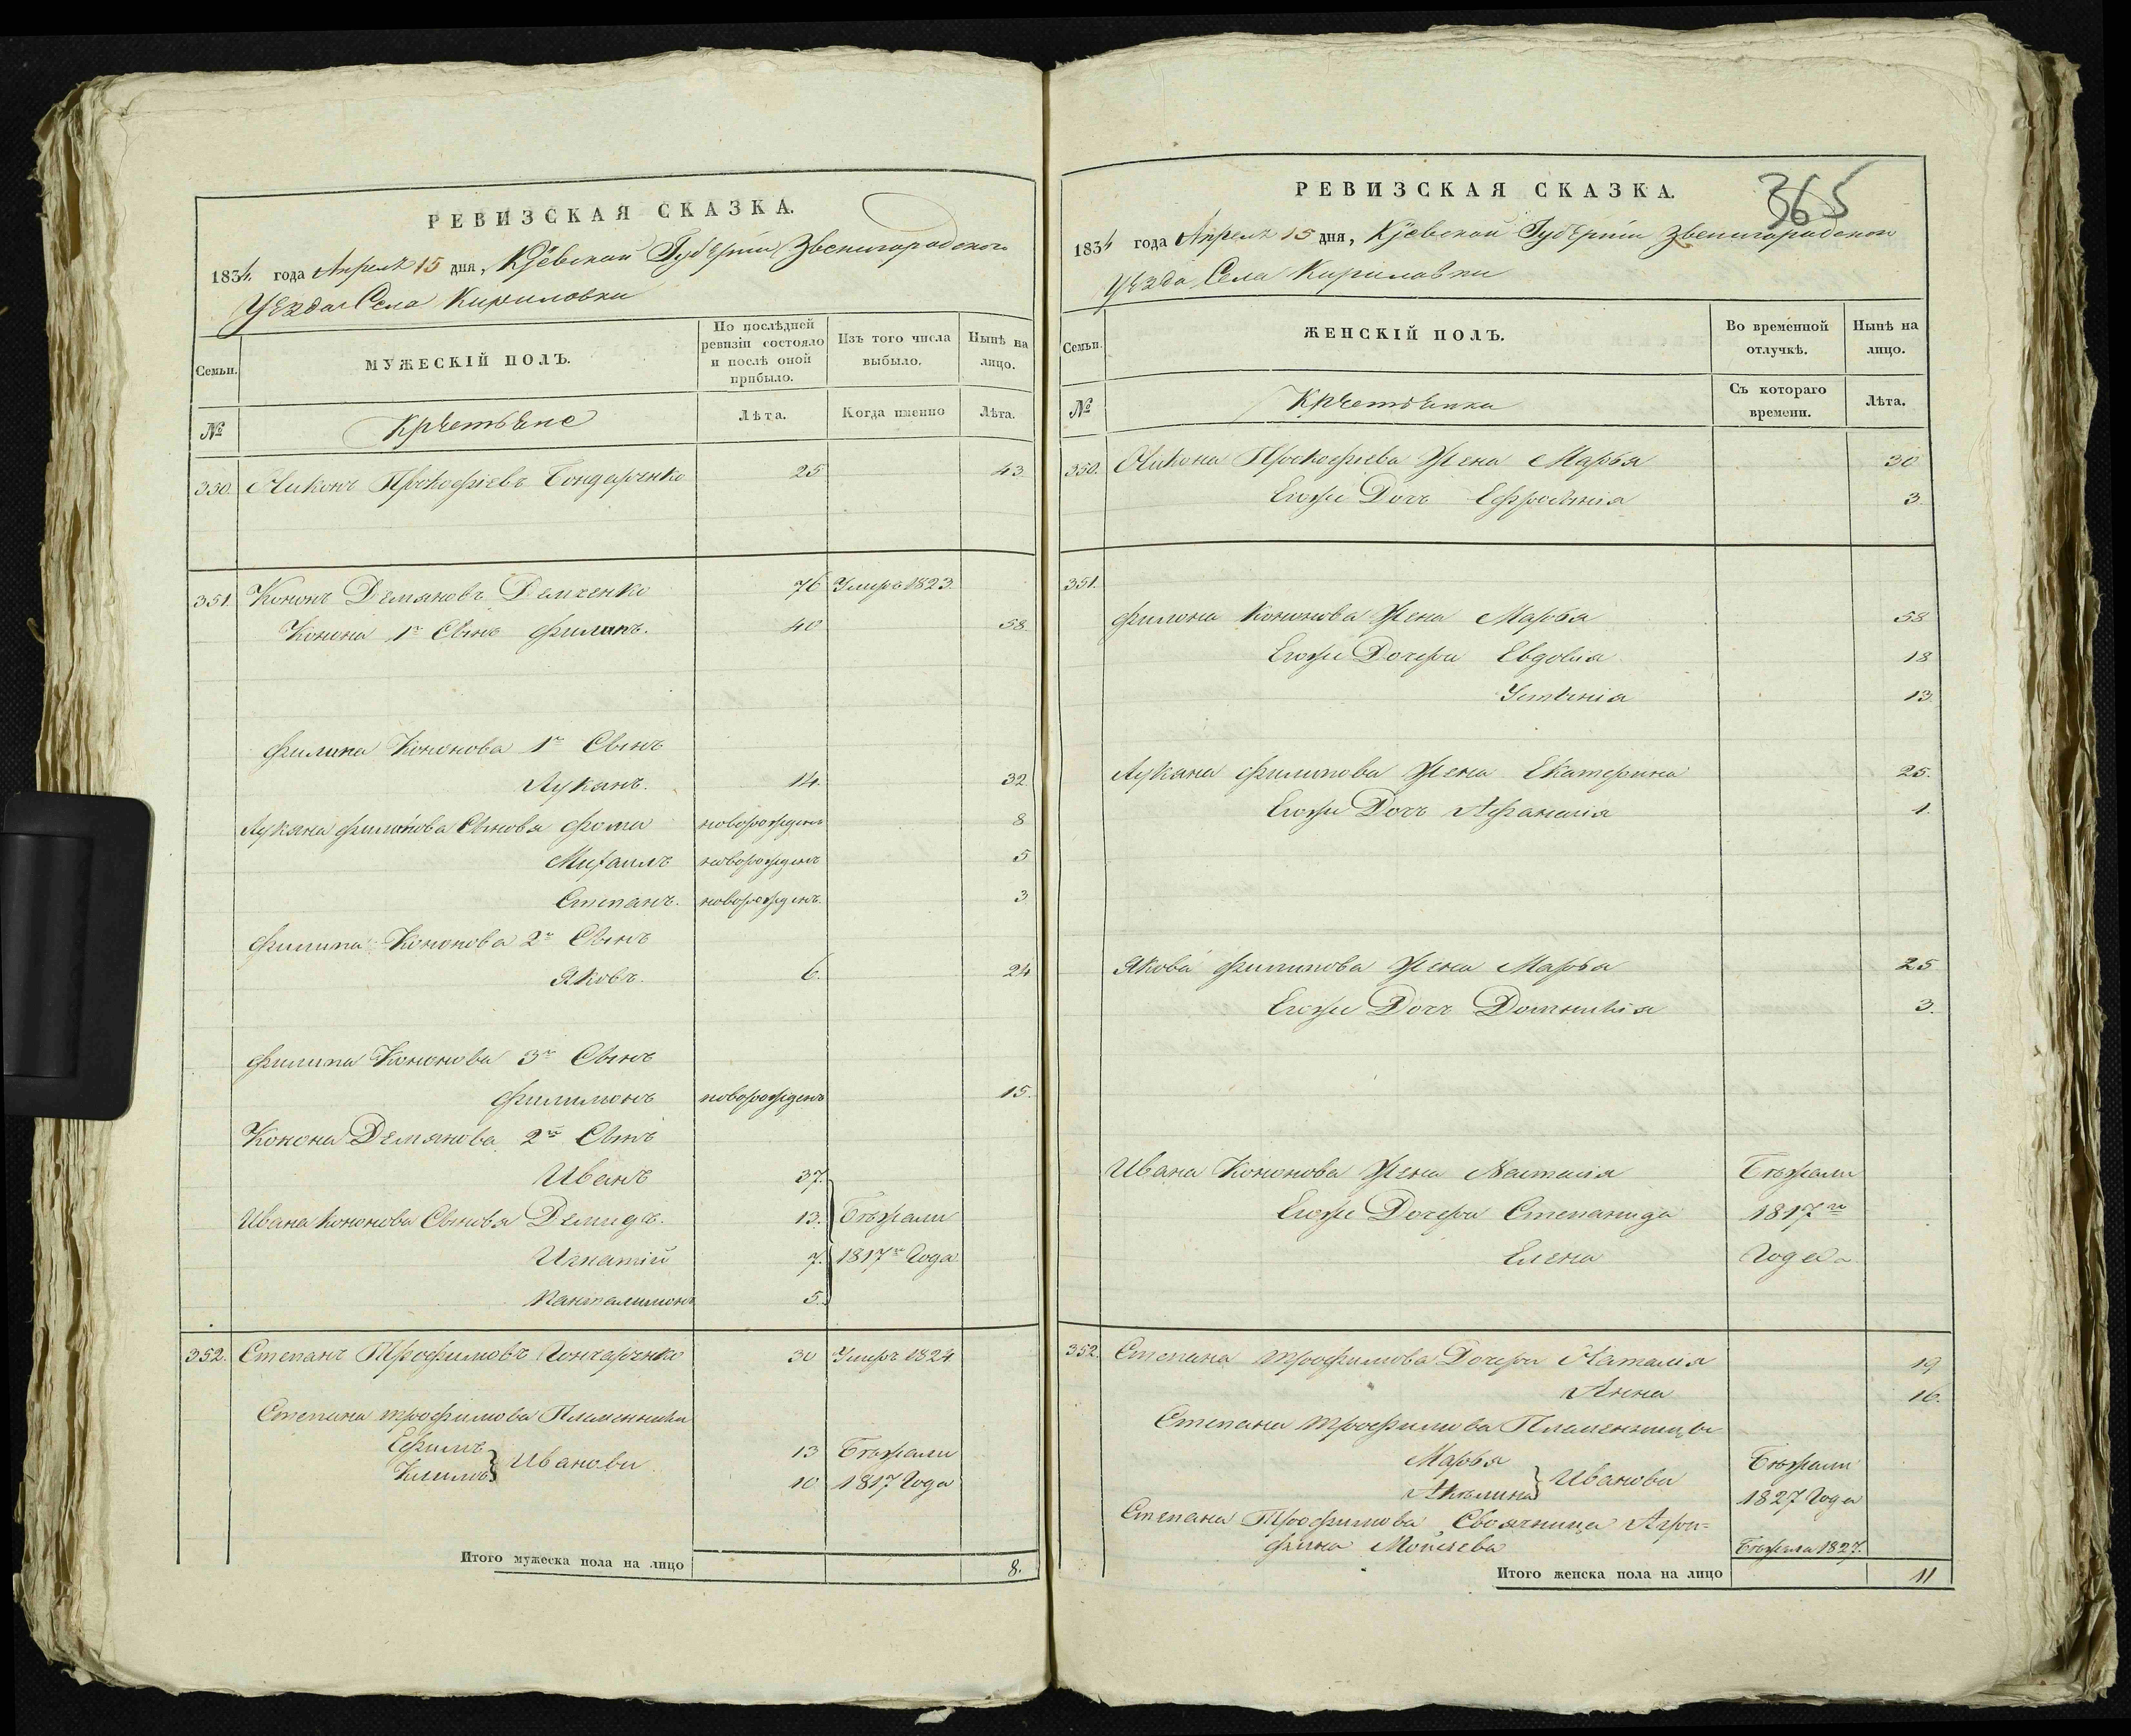 РЕВИЗСКАЯ СКАЗКА.
1834 года Апреля 15 дня, Кіевской Губерніи Звенигородского
Уезда Села Кириловки
Семьи.
МУЖЕСКІЙ ПОЛЪ.
По послѣдней ревизіи состояло и послѣ оной прибыло.
Изъ того числа выбыло.
Нынѣ на лицо.
№
Лѣта.
Когда именно
Лѣта.
350. Никонъ Прокофіевъ Бондаренко 25 43
351. Кононъ Демяновъ Демченко 76 Умеръ 1823.
Конона 1й Сынъ Филипъ. 40 58
Филипа Кононова 1й Сынъ
Лукянъ. 14. 32
Лукяна Филипова Сыновя Фома новорожденъ 8
Михаилъ новорожденъ 5
Степанъ. новорожденъ 3
Филипа Кононова 2й Сынъ
Яковъ. 6. 24
Филипа Кононова 3й Сынъ
Филимонъ новорожденъ 15.
Конона Демянова 2й Сынъ
Иванъ 37.
Ивана Кононова Сыновя Демидъ. 13. Бѣжали
Игнатій 7. 1817го Года
Панталимонъ 5.
352. Степанъ Трофимовъ Гончаренко 30 Умеръ 1824
Степана Трофимова Племенники
Ефимъ 13 Бѣжали
Ивановы
10 1817 Года
Итого мужеска пола на лицо 8.
РЕВИЗСКАЯ СКАЗКА.
365
1834 года Апреля 15 дня, Кіевской Губерніи Звенигородского
Уезда Села Кириловки
Семьи.
ЖЕНСКІЙ ПОЛЪ.
Во временной отлучкѣ.
Нынѣ на лицо.
№
Съ котораго времени.
Лѣта.
350. Никона Прокофіева Жена Марья 30
Егоже Дочъ Ефросинія 3
351.
Филипа Кононова Жена Марья 58
Егоже Дочери Евдокія 18
Устинія 13
Лукяна Филипова Жена Екатерина 25.
Егоже Дочъ Афанасія 1.
Якова Филипова Жена Марья 25
Егоже Дочъ Домникія 3.
Ивана Кононова Жена Настасія Бѣжали
Егоже Дочери Степанида 1817го
Елена Года
352. Степана Трофимова Дочери Наталія 19
Анна 16.
Степана Трофимова Племенницы
Марья Бѣжали
Акѣлина Иванова 1827 Года
Степана Трофимова Своячница Агри=
фина Моисеева Бѣжала 1827.
Итого женска пола на лицо 11